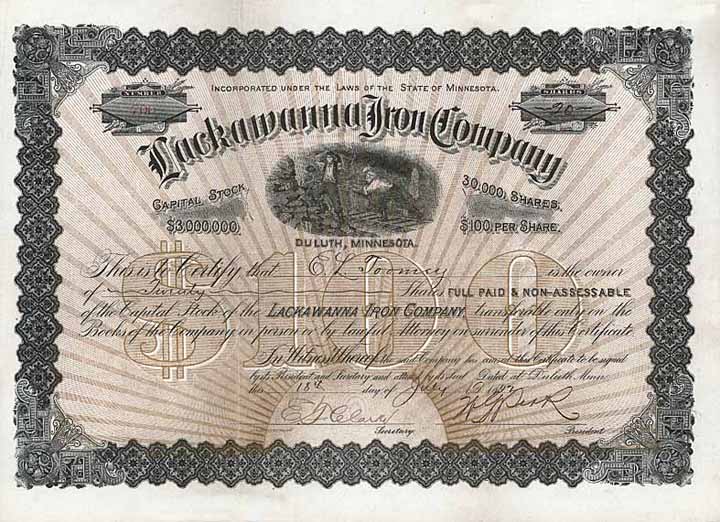 INCORPORATED UNDER THE LAWS OF THE STATE OF MINNESOTA.
NUMBER
SHARES
20
Lackawanna Iron Company
CAPITAL STOCK,
$3,000,000,
30,000, SHARES,
$100, PER SHARE.
DULUTH, MINNESOTA.
$100
This is to Certify that E L Toomey is the owner
of Twenty Shares FULL PAID & NON-ASSESSABLE
of the Capital Stock of the LACKAWANNA IRON COMPANY, transferable only on the
Books of the Company in person or by lawful Attorney on surrender of this Certificate
In Witness Whereof the said Company has caused this Certificate to be signed
by its President and Secretary and attested by its Seal Dated at Duluth Minn.
this 13th day of July
Secretary.
President